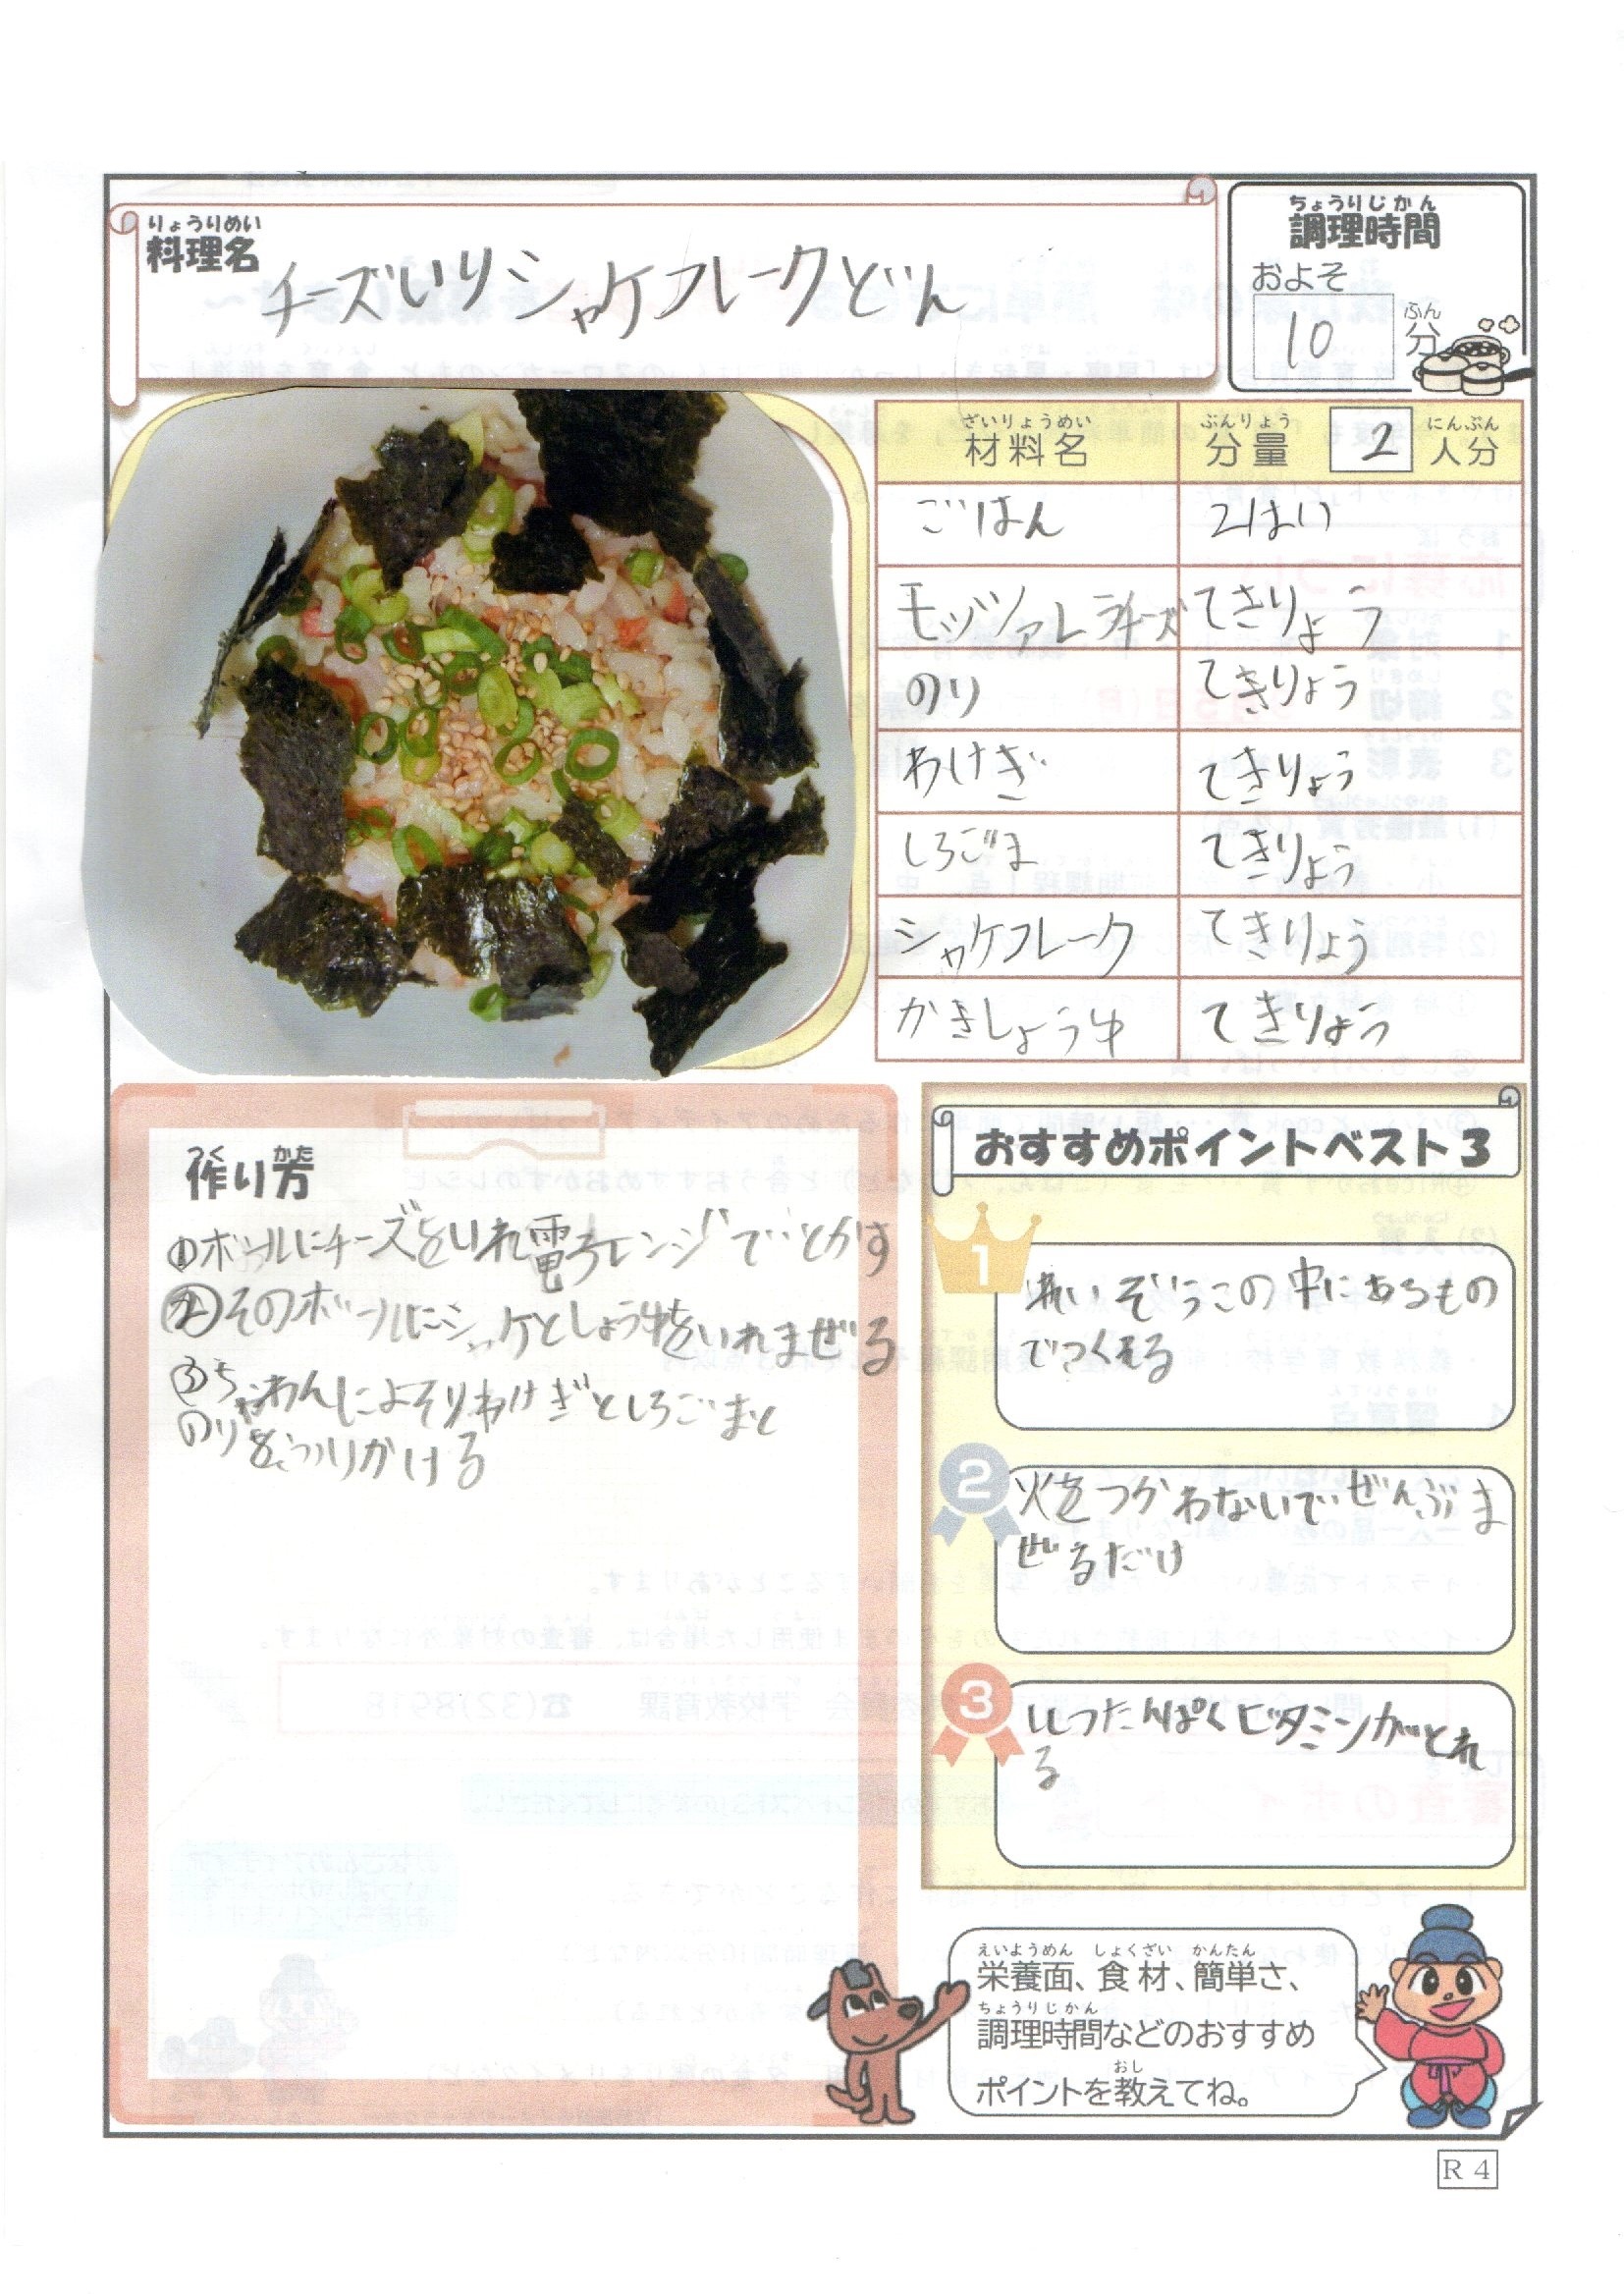 りょうりめい
料理名
チーズいりシャケフレークどん
ちょうりじかん
調理時間
およそ
10
ふん
分
ざいりょうめい
材料名
ぶんりょう
分量
2
にんぶん
人分
ごはん
2はい
モッツァレラチーズ
てきりょう
のり
てきりょう
わけぎ
てきりょう
しろごま
てきりょう
シャケフレーク
てきりょう
かきしょうゆ
てきりょう
つく かた
作り方
①ボールにチーズをいれ電子レンジでとかす
②そのボールにシャケとしょうゆをいれまぜる
③ちゃわんによそりわけぎとしろごまと
のりをふりかける
おすすめポイントベスト3
1
ぞうこの中にあるもの
でつくれる
2
火をつかわないでぜんぶま
ぜるだけ
3
ししつたんぱくビタミンがとれ
る
えいようめん しょくざい かんたん
栄養面、食材、簡単さ、
ちょうりじかん
調理時間などのおすすめ
おし
ポイントを教えてね。
R4